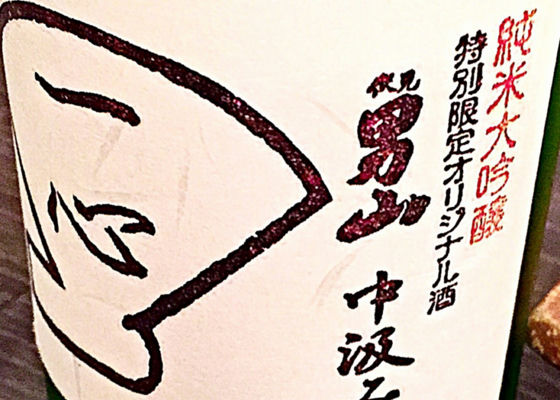 純米大吟醸
特別限定オリジナル酒
伏見
男山
中汲み
一心